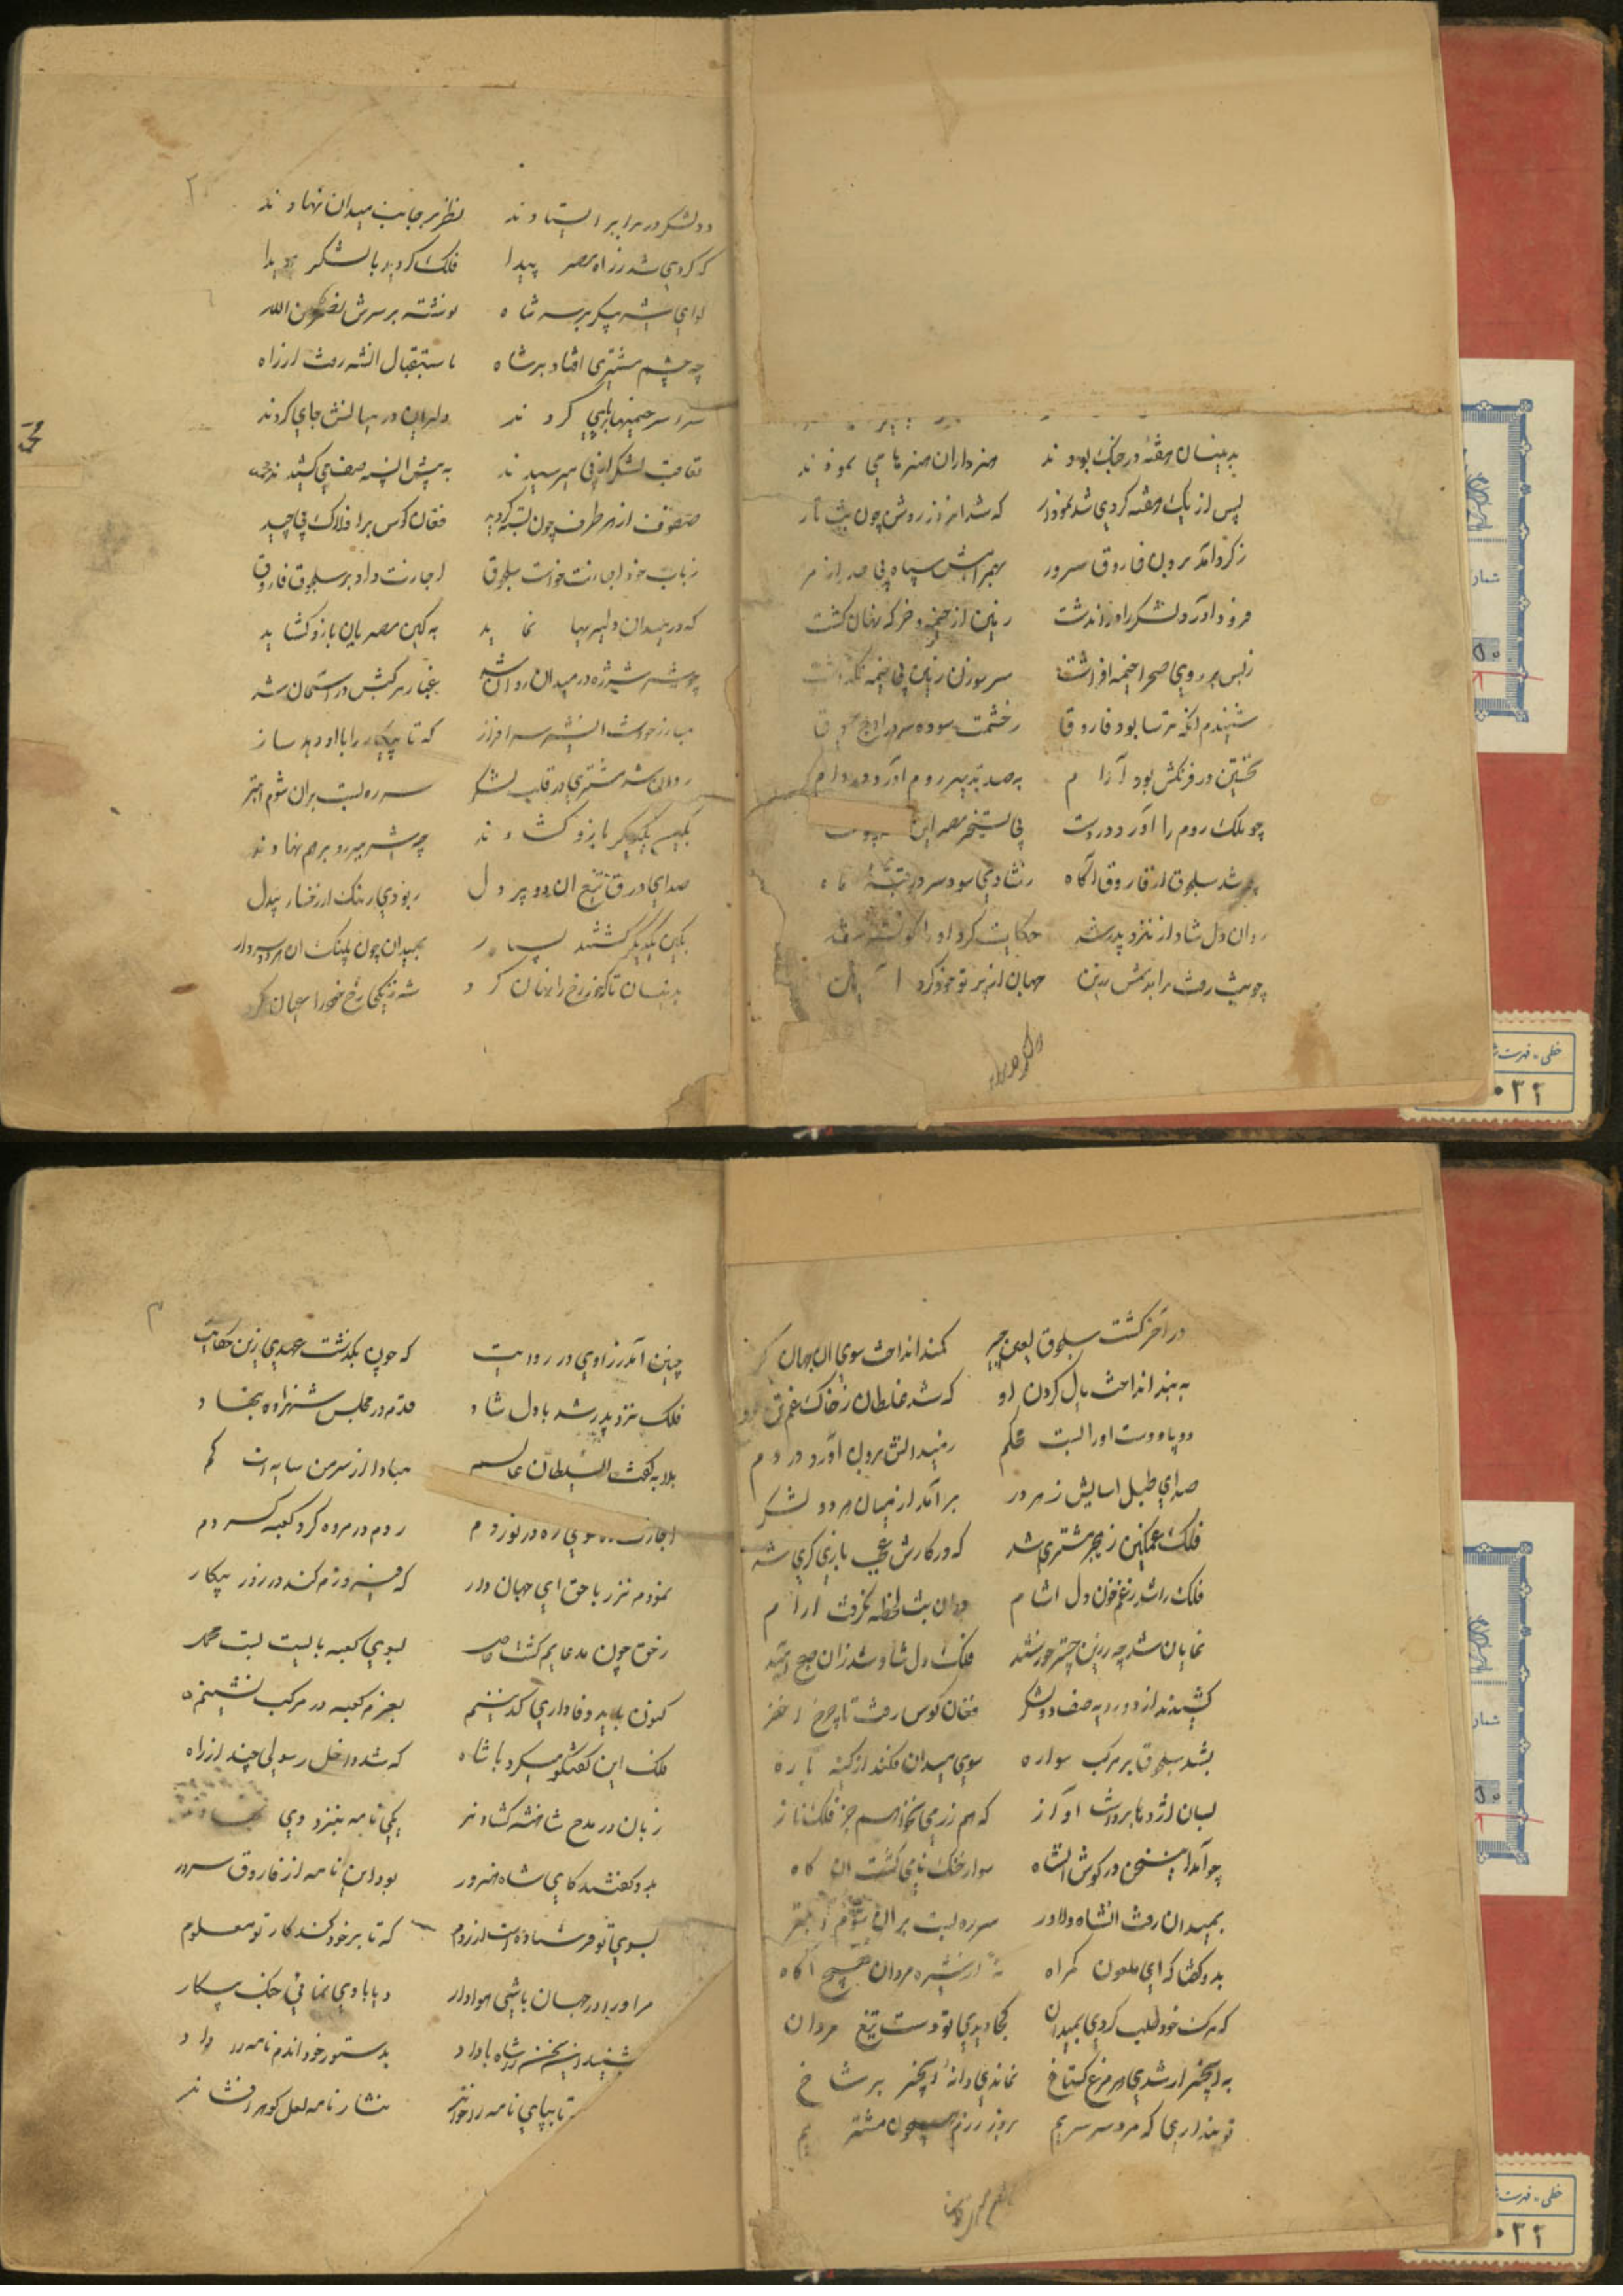 بدینسان هفتهٔ در جنک بودند هنرداران هنرها می نمودند
پس از یک هفته کردی شد نمودار که شد امروز روشن چون شب تار
ز کرد آمد برون فاروق سرور بهمراهش سپاه بی
فرود آورد لشکر را در آن دشت زمین از خیمه و خرکه نهان کشت
زبس بر روی صحرا خیمه افراشت سر سوزن زمین بی خیمه نکذاشت
شنیدم انکه ترسا بود فاروقا
نخستین در فرنکش بود آرام به صد تدبیر روم آورد در دام
چو ملک روم را آورد در دست پی تسخیر مصر این
چو شد سلجوق از فاروق آکاه ز شادی سود سر بر
روان دل شاد از نزد پدر شد حکایت کرد او را
چو شب رفت برآمد جهان از پرتو خود کرد
دو لشکر در برابر ایستادند نظر بر جانب میدان نهادند
که کردی شد ز راه مصر پیدا فلک کردید با لشکر هویدا
لوای شیر پیکر بر سر شاه نوشته بر سرش نصر من الله
چه چشم مشتری افتاد بر شاه باستقبال انشه رفت از راه
سراسر خیمها برپای کردند دلیران در میانش جای کردند
تعاقب لشکر از پی میرسیدند به پیش انشه صف می کشیدند
صفوف از هر طرف چون بسته کردید فغان کوس بر افلاک پیچید
زباب خود اجازت خواست سلجوق اجازت داد بر سلجوق فاروق
که در میدان دلیریها نماید به کین مصریان بازو کشاید
چو شیر شرزه در میدان روان شد غبار مرکبش در آسمان شد
مبارز خواست انشیر سرافراز که تا پیکار را با او دهد ساز
روان شد مشتری در قلب لشکر سر ره بست بر ان شوم ابتر
بکین یکدیکر بازو کشادند چه شیر نر رو بر هم نهادند
صدای درق تیغ ان دو پر دل ربودی رنک از رخسار بیدل
بکین یکدیکر کشتند بسیار بمیدان چون پلنک ان هر دو سردار
بدینسان تا که خور رخ را نهان کرد شه زنکی رخ خود را عیان کرد
در آخر کشت سلجوق لعین چیر کمند انداخت سوی ان جهان کیر
به بند انداخت یال کردن او که شد غلطان ز خاک غم تن او
دو پا و دست او را بست محکم ز میدانش برون آورد در دم
صدای طبل اسایش ز هر در بر آمد از میان هر دو لشکر
فلک غمکین ز هجر مشتری شد که در کارش عجب بازی کری شد
فلک را شد ز غم خون دل اشام در ان شب لحظهٔ نکرفت ارام
نمایان شد چه زرین چتر خورشید فلک دل شاد شد زان صبح امید
کشیدند از دو رویه صف دو لشکر فغان کوس رفت تا چرخ اخضر
بشد سلجوق بر مرکب سواره سوی میدان فکند از کینه باره
بسان اژدها برداشت آواز که هم رزمی نخواهم جز فلک ناز
چو آمد این سخن در کوش انشاه سوار خنک نامی کشت ان کاه
بمیدان رفت انشاه دلاور سر ره بست بر ان شوم ابتر
بدو کفتا که ای ملعون کمراه نهٔ از شیره مردان هیچ آکاه
که مرک خود طلب کردی بمیدان کجا دیدی تو دست تیغ مردان
به انجیر ار شدی هر مرغ کستاخ نماندی دانهٔ انجیر بر شاخ
تو پنداری که مرد سرسریم بروز رزم همچون مشتریم
چنین آمد ز راوی در روایت که چون بکذشت عهدی زین حکایت
فلک نزد پدر شد با دل شاد قدم در مجلس شهزاده بنهاد
بلابه کفت السلطان عالم مبادا از سر من سایه ات کم
اجازت ده سوی ره در نوردم روم در مروه کرد کعبه کردم
نمودم نذر با حق ای جهان دار که فیروزم کند در روز پیکار
ز حق چون مدعایم کشت حاصل بسوی کعبه بایست بست محمل
کنون باید وفاداری کزینم بعزم کعبه در مرکب نشینم
فلک این کفتکو میکرد با شاه که شد داخل رسولی چند از راه
زبان در مدح شاهنشه کشادند یکی نامه بنزد وی نهادند
بدو کفتند کای شاه هنرور بود این نامه از فاروق سرور
بسوی تو فرستاده است از روم که تا بر خود کند کار تو معلوم
مر او را در جهان باشی هوادار و یا با وی نمائی جنک پیکار
شنید این سخن شاه با داد بدستور خود اندم نامه را داد
تا بپای نامه را خواند نثار نامه لعل کوهر افشاند
خطی - فهرست
۰۲۲
شمار